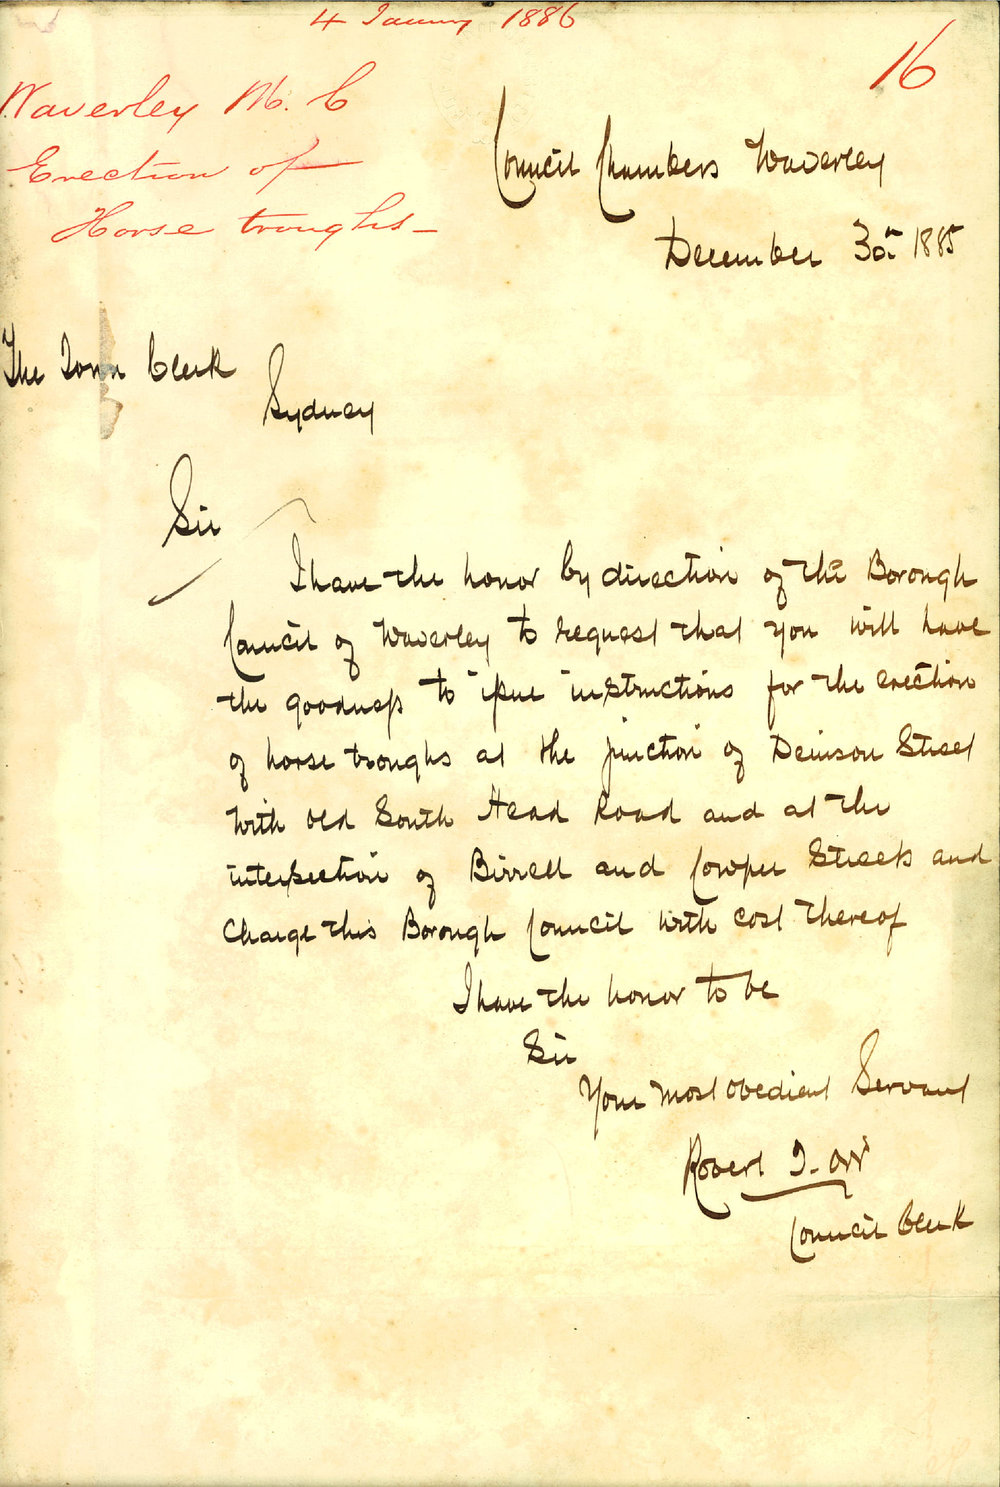 4 January 1886
16
Waverley M. C
Erection of
Horse troughs -
Council Chambers Waverley
December 30th 1885
The Town Clerk
Sydney
Sir
I have the honor by direction of the Borough
Council of Waverley to request that you will have
the goodness to issue instructions for the erection
of horse troughs at the junction of Denison Street
with old South Head Road and at the
intersection of Birrell and Cowper Streets and
charge this Borough Council with cost thereof
I have the honor to be
Sir
Your most obedient Servant
Robert T. Orr
Council Clerk